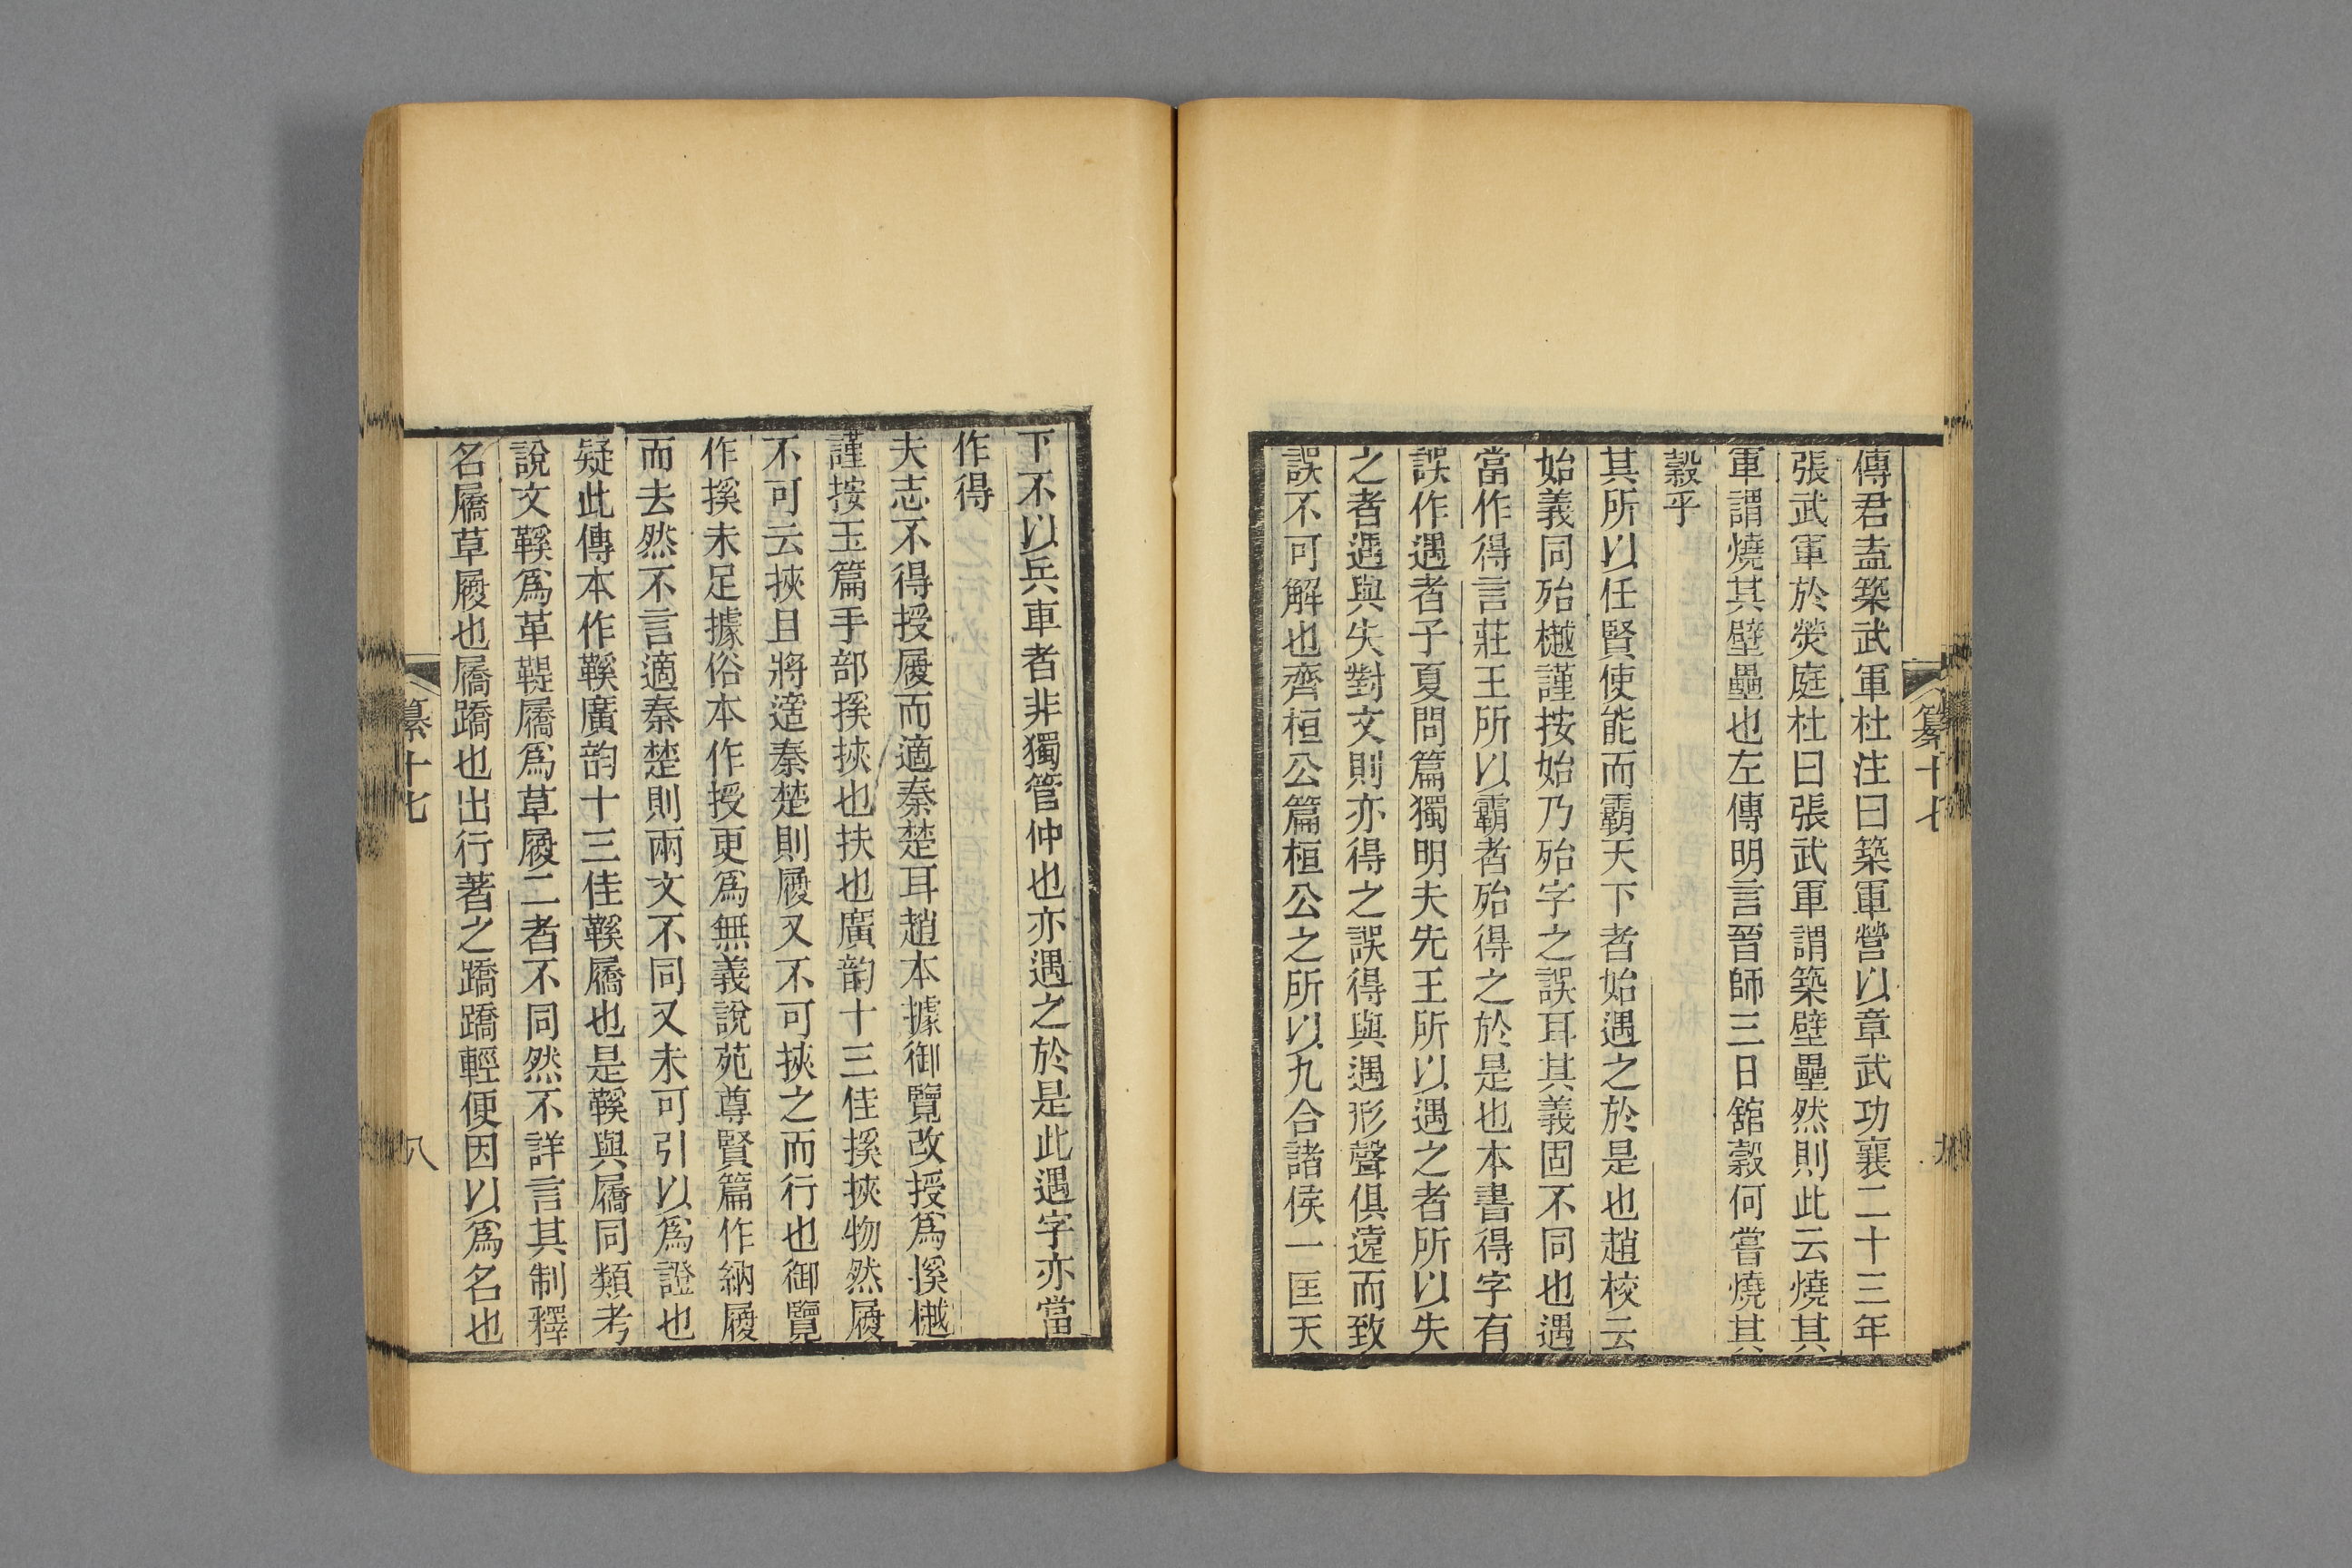 傳君盍築武軍杜注曰築軍營以章武功襄二十三年
張武軍於熒庭杜曰張武軍謂築壁壘然則此云燒其
軍謂燒其壁壘也左傳明言晉師三日舘穀何嘗燒其
穀乎
其所以任賢使能而霸天下者始遇之於是也趙校云
始義同殆樾謹按始乃殆字之誤耳其義固不同也遇
當作得言莊王所以霸者殆得之於是也本書得字有
誤作遇者子夏問篇獨明夫先王所以遇之者所以失
之者遇與失對文則亦得之誤得與遇形聲俱遠而致
誤不可解也齊桓公篇桓公之所以九合諸侯一匡天
纂十七
下不以兵車者非獨管仲也亦遇之於是此遇字亦當
作得
夫志不得授履而適秦楚耳趙本據御覽改授爲徯樾
謹按玉篇手部摖挾也扶也廣韵十三佳摖挾物然履
不可云挾且將適秦楚則履又不可挾之而行也御覽
作摖未足據俗本作授更爲無義說苑尊賢篇作納履
而去然不言適秦楚則兩文不同又未可引以爲證也
疑此傳本作鞵廣韵十三佳鞵屩也是鞵與屩同類考
說文鞵爲革鞮屩爲草履二者不同然不詳言其制釋
名屩草履也屩蹻也出行著之蹻蹻輕便因以爲名也
纂十七
八